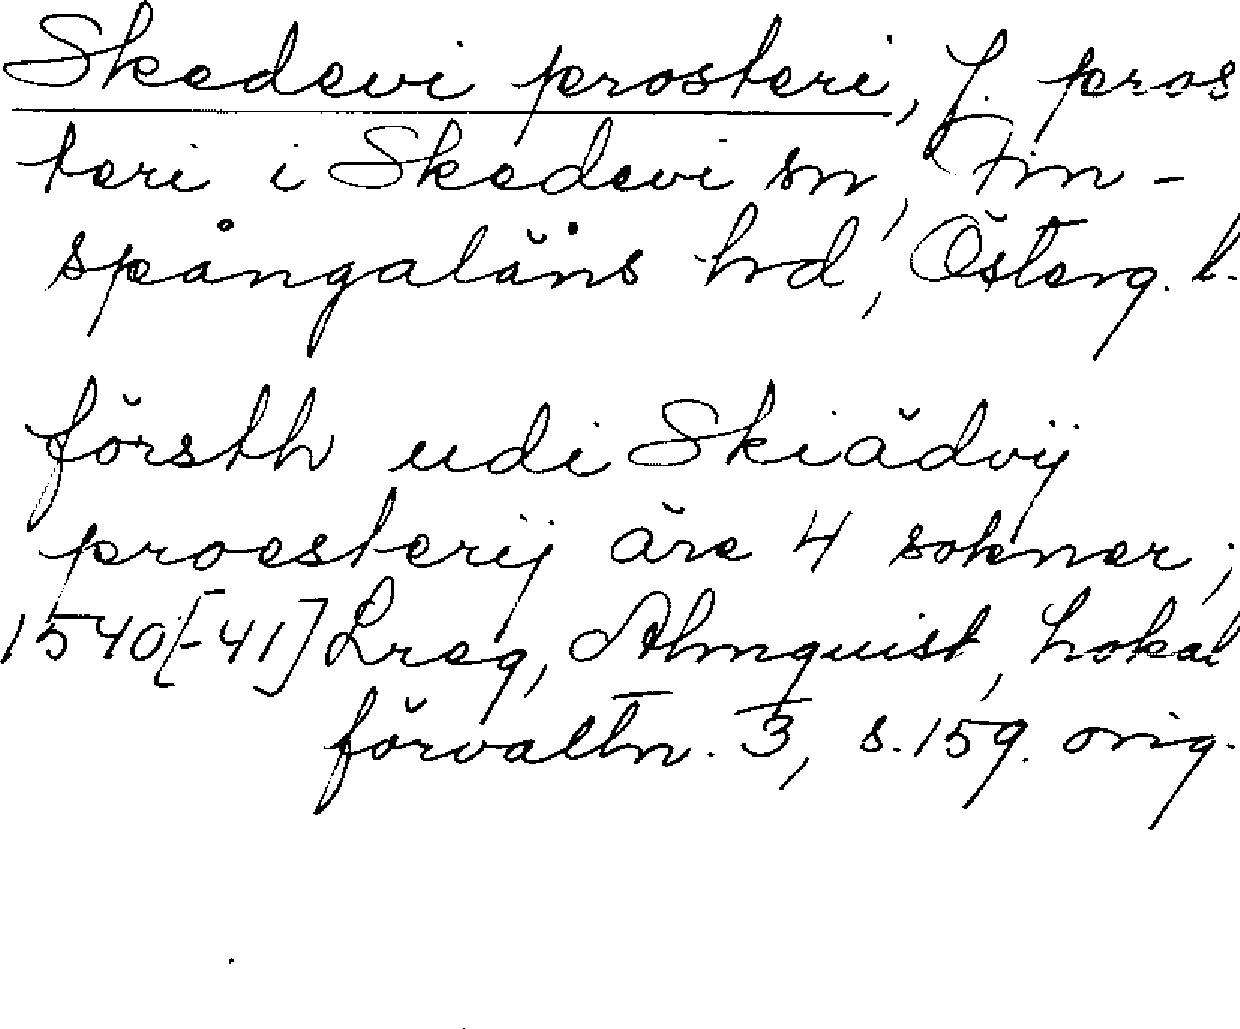 Skedevi prosteri, f. pros
teri i Skedevi sn, Fin-
spångaläns hrd, Österg. l.
försth udi Skiädvij
proesterij äre 4 sokner;
1540[-41] Lreg, Almquist, Lokal
förvaltn. 3, s. 159. orig.